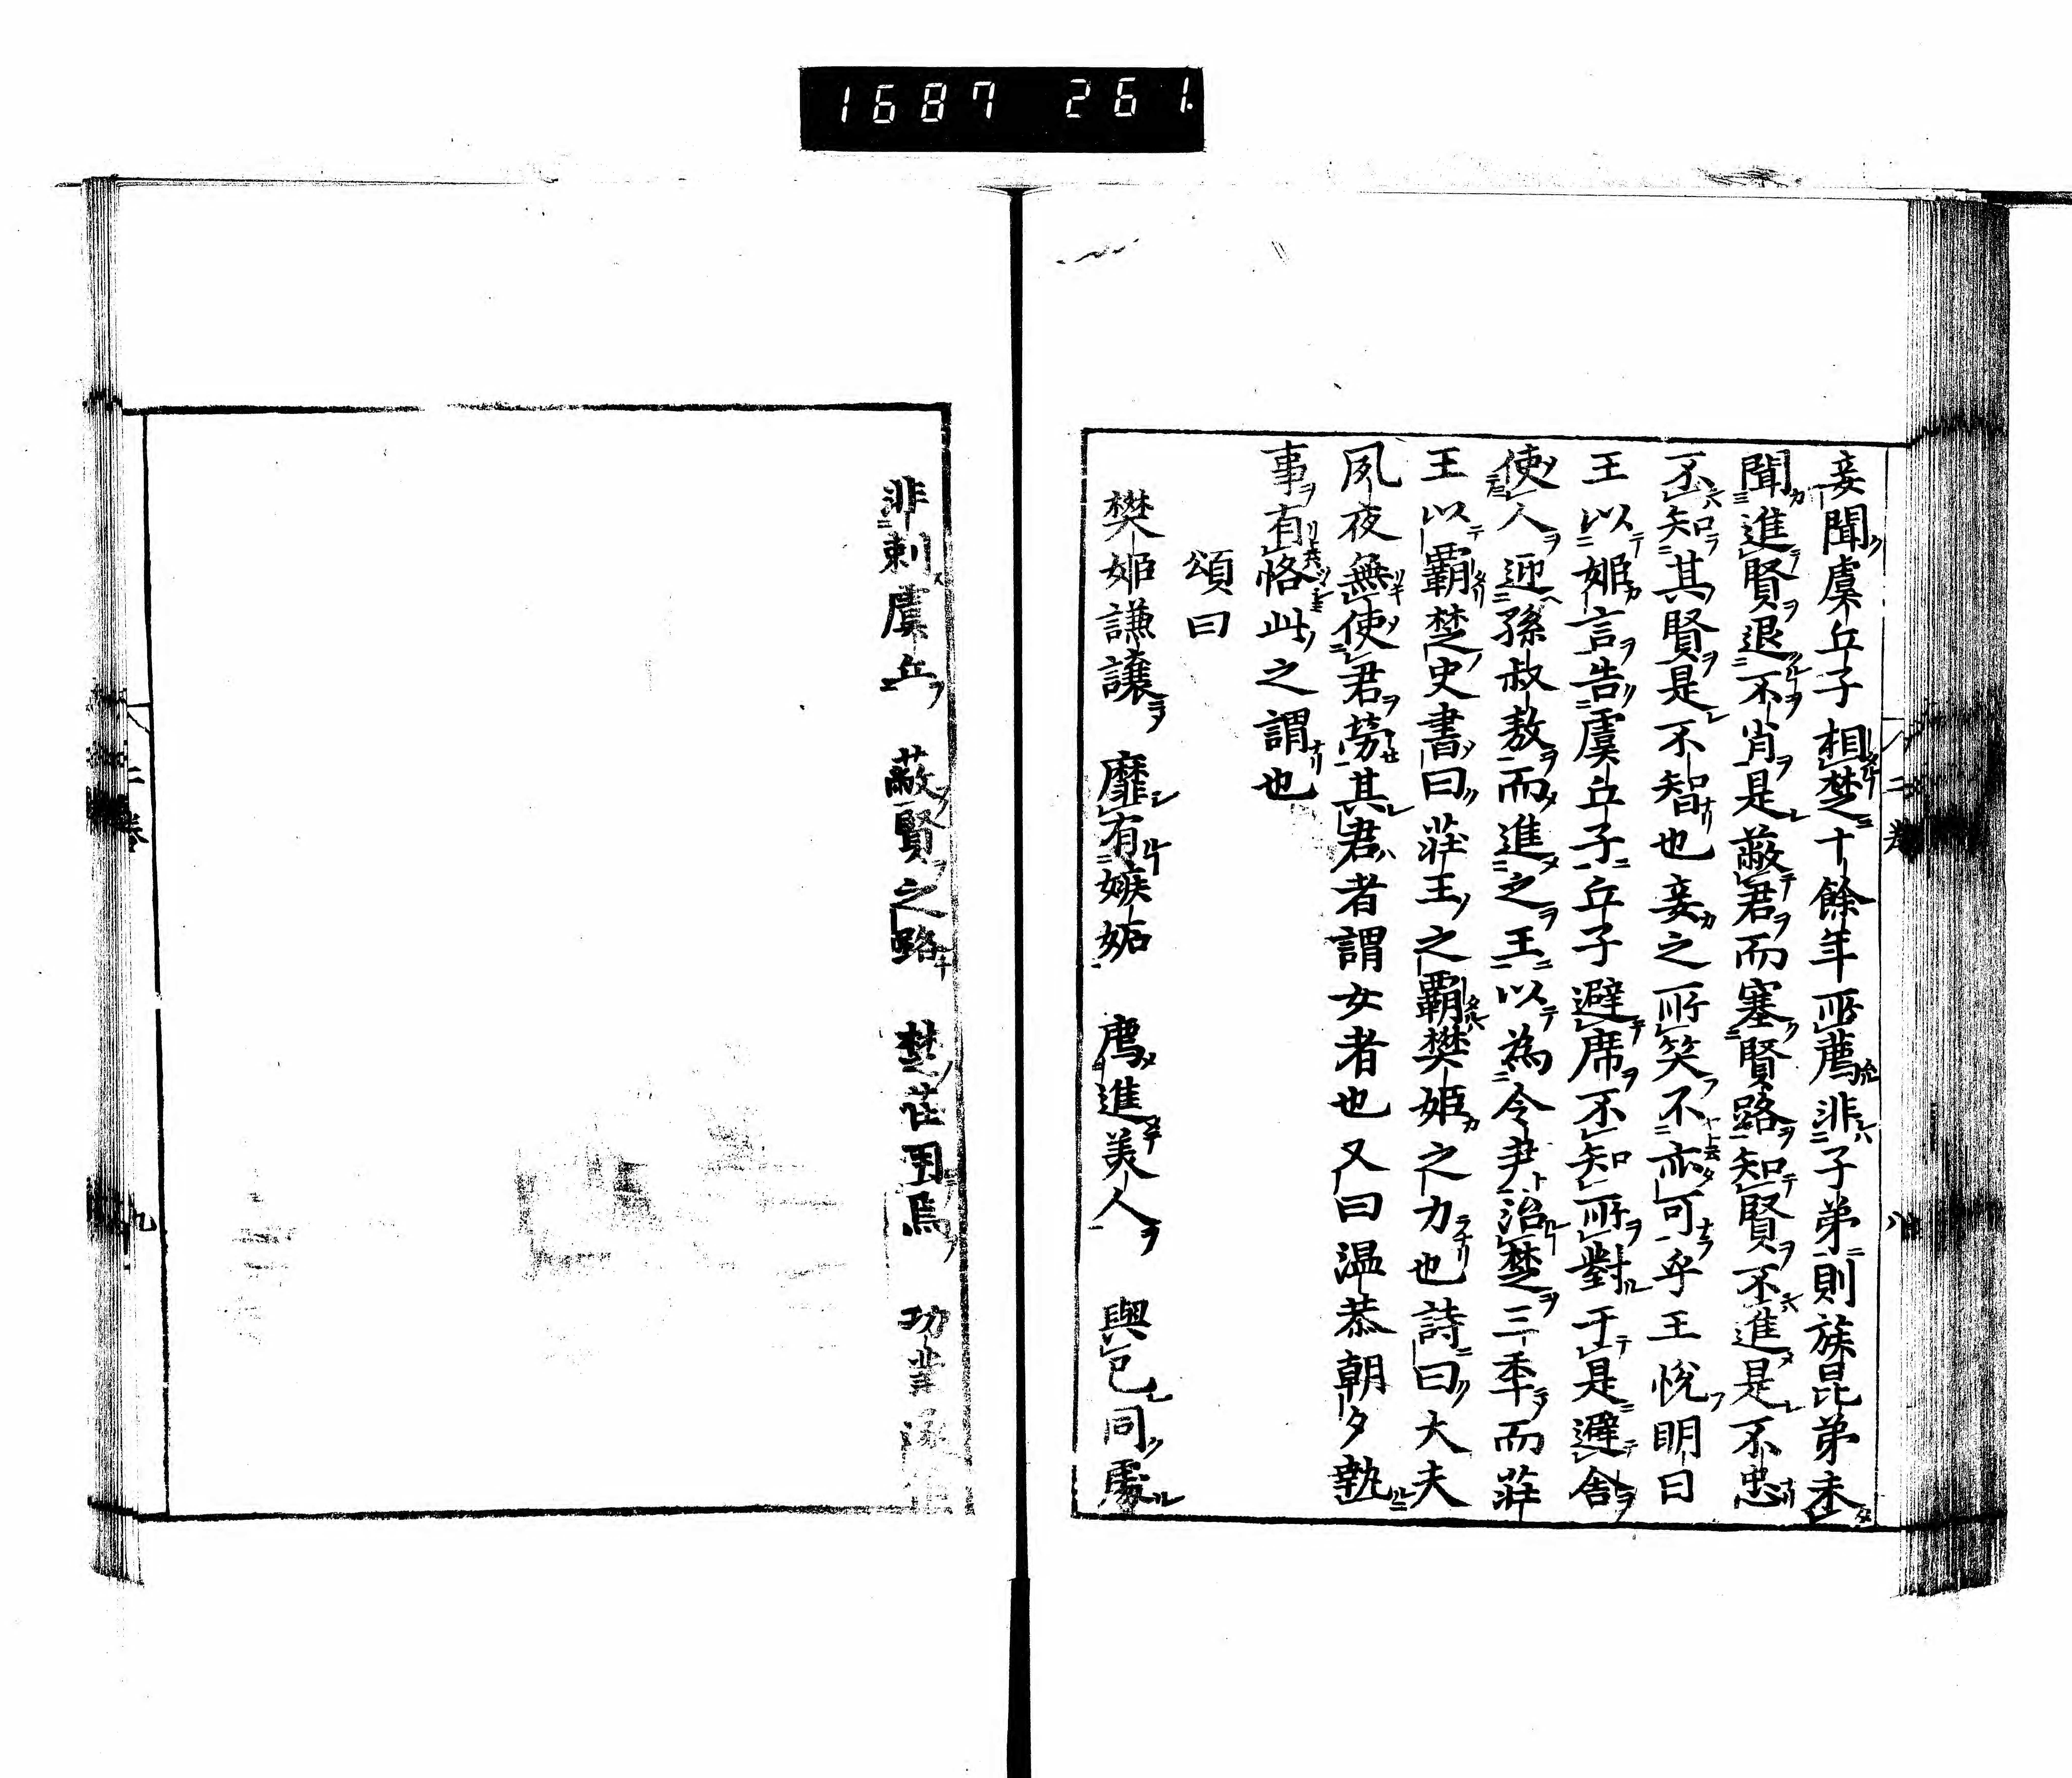 1687 261.
妾聞虞丘子相楚十餘年所薦非子弟則族昆弟未
聞進賢退不肖是蔽君而塞賢路知賢不進是不忠
不知其賢是不智也妾之所笑不亦可乎王悅明日
王以姬言告虞丘子丘子避席不知所對于是避舍
使人迎孫叔敖而進之王以為令尹治楚三季而莊
王以霸楚史書曰莊王之霸樊姬之力也詩曰大夫
夙夜無使君勞其君者謂女者也又曰温恭朝夕執
事有恪此之謂也
頌曰
樊姬謙讓　靡有嫉妬　薦進美人　與己同處
非刺虞丘　蔽賢之路　楚莊用焉　功業遂伯